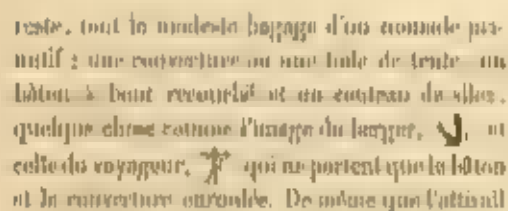 reste, tout le modeste bagage d'un nomade pri-
mitif : une couverture ou une toile de tente, un
bâton à bout recourbé et un couteau de silex,
quelque chose comme l'image du berger, et
celle du voyageur, qui ne portent que le bâton
et la couverture enroulée. De même que l'attirail